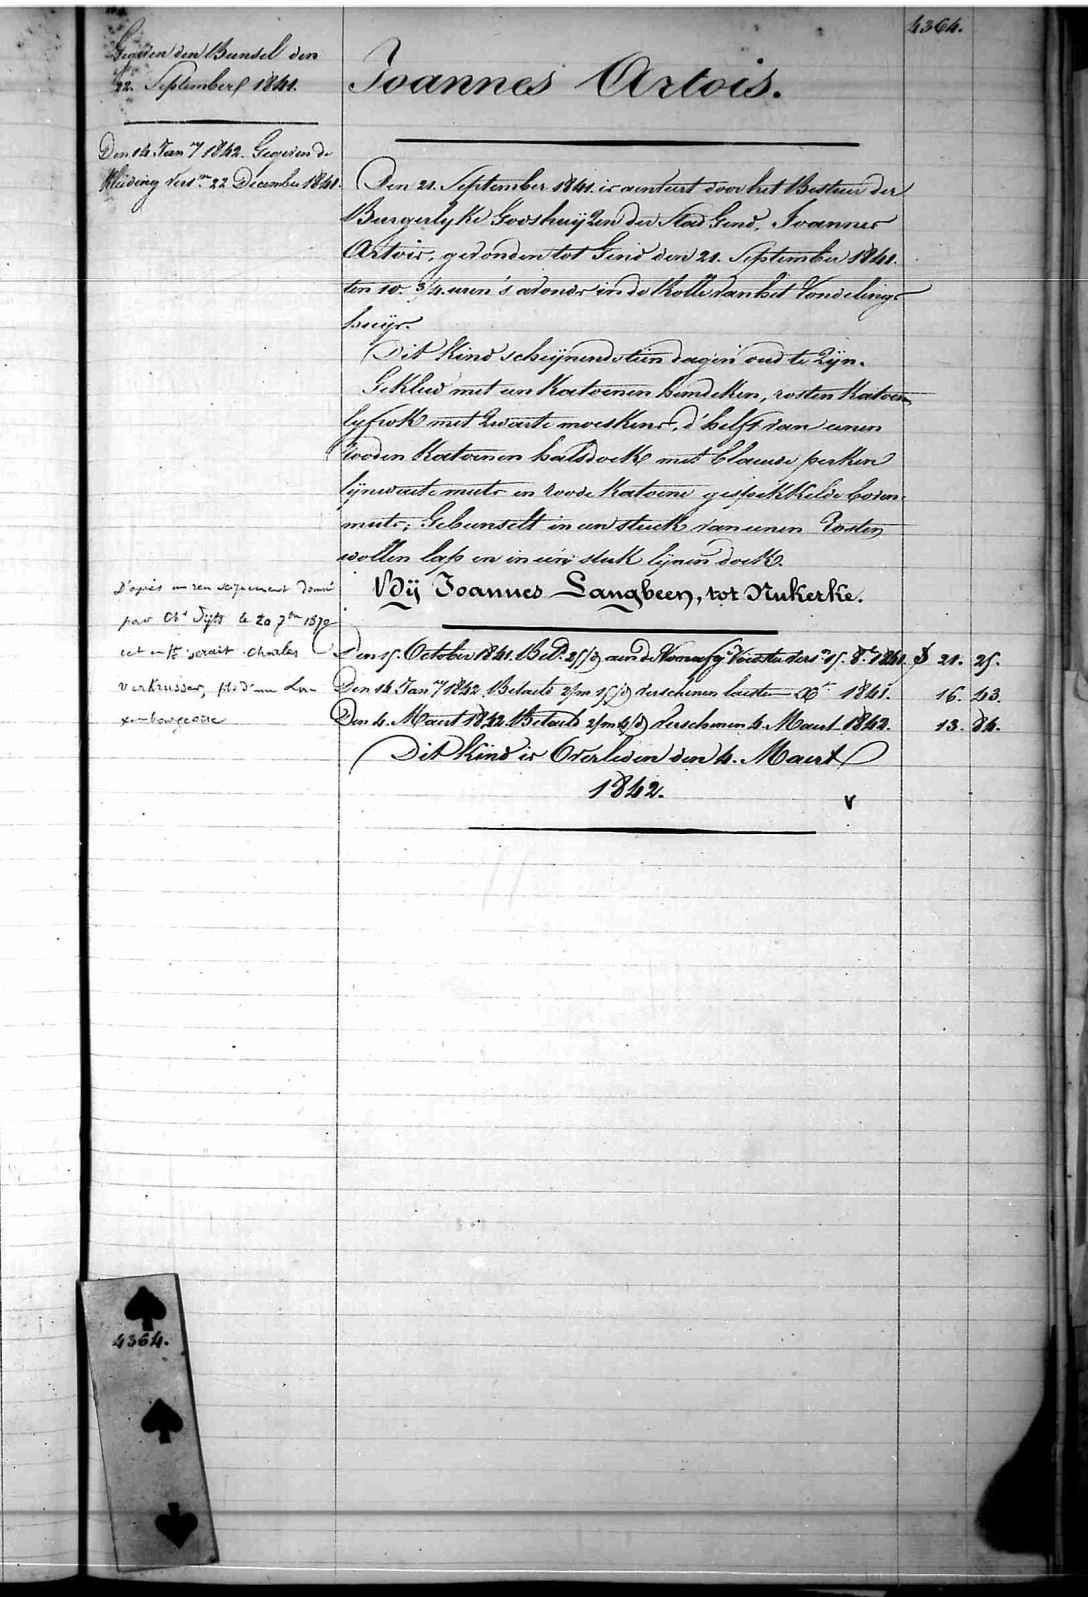 4364.
Gegeven den Bunsel den
22. September 1841.
Joannes Artois.
Den 14 Jan.ry 1842. Gegeven de
Kleeding vers.en 22 December 1841.
Den 21. September 1841. is aenveert door het Bestuer der
Burgerlyke Godshuijzen der Stad Gend, Joannes
Artois, gevonden tot Gend den 21. September 1841.
ten 10. 3/4. uren 's avonds in de Rolle van het Vondelings-
huijs.
Dit Kind schijnende tien dagen oud te Zijn.
Gekleed met een Katoenen hemdeken, rosten Katoen
lyfrok met Zwarte moeskens, d'helft van eenen
rooden Katoenen halsdoek met blauwe perken
lijnwaete muts en roode Katoene gespikkelde boven-
muts; Gebunselt in een stuk van eenen rosten
wollen lap en in een stuk lijnen doek.
Bij Joannes Langbeen, tot Nukerke.
D'après un renseignement donné
par Ch.s le 20 7bre 1872
cet enf.t serait Charles
Verkrusser, fils d'une Lu-
xembourgeoise
Den 15. October 1841. Bet.d aen de Voorzegde Voedster vers.en 15. 8.br 1841. $ 21. 25.
Den 14 Jan.ry 1842 Betaeld verschenen laesten X.br 1841. 16. 43.
Den 4. Maert 1842 Betaeld verschenen 4 Maert 1842. 13. 84.
Dit Kind is Overleden den 4. Maert
1842.
V
4364.